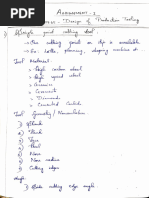 Assignment-1
Design of Production Tooling
Single point cutting tool.
→ One cutting point or tip is available.
→ Ex: Lathe, planning, shaping machine etc
Tool Material:
→ High carbon steel
→ High speed steel
→ Ceramic
→ Diamond
→ Cemented Carbide
Tool Geometry / Nomenclature
1) Shank
2) Flank
3) Face
4) Nose
5) Nose radius
6) Cutting edge
Angles
1) Side cutting edge angle